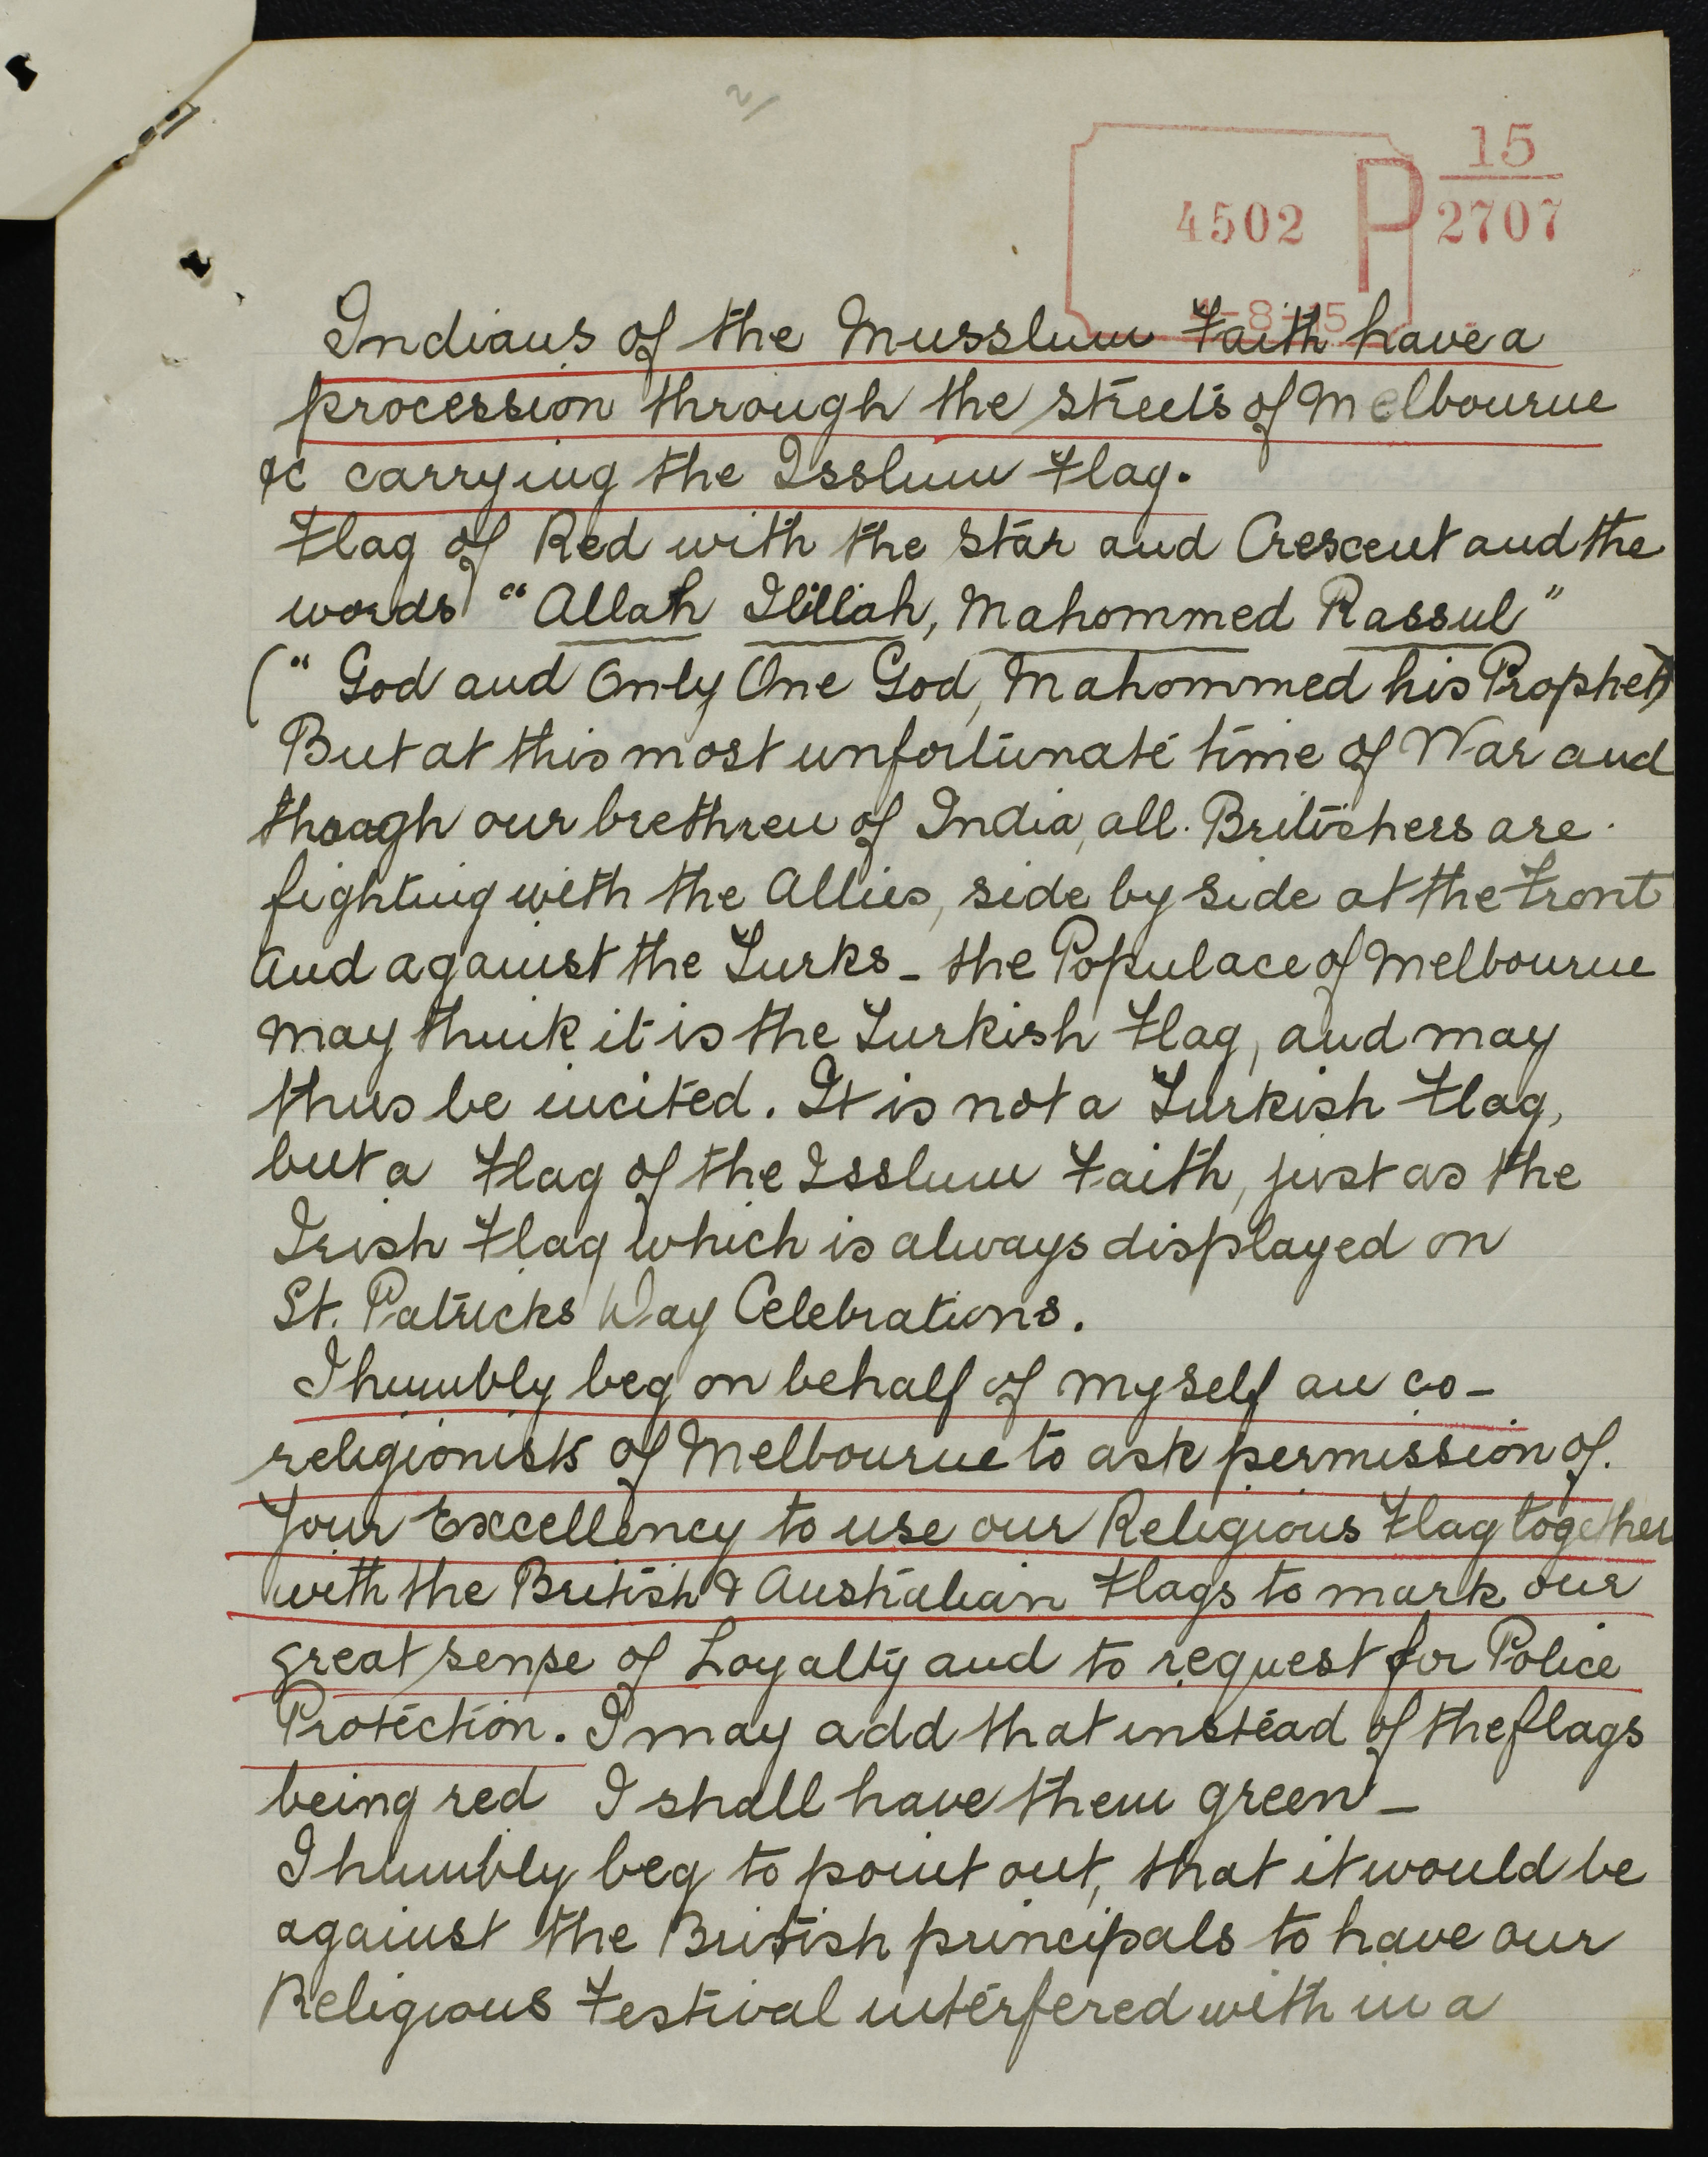 2/
15
4502 P 2707
-8-15
Indians of the Musslum Faith have a
procession through the streets of Melbourne
&c carrying the Isslum Flag.
Flag of Red with the Star and Crescent and the
words "Allah Ilillah, Mahommed Rassul"
(" God and Only One God, Mahommed his Prophet)
But at this most unfortunate time of War and
though our brethren of India, all Britishers are
fighting with the Allies, side by side at the Front
and against the Turks - the Populace of Melbourne
may think it is the Turkish Flag, and may
thus be incited. It is not a Turkish Flag,
but a Flag of the Isslum Faith, just as the
Irish Flag which is always displayed on
St. Patricks Day Celebrations.
I humbly beg on behalf of myself an co-
religionists of Melbourne to ask permission of
Your Excellency to use our Religious Flag together
with the British & Australian Flags to mark our
great sense of Loyalty and to request for Police
Protection. I may add that instead of the flags
being red I shall have them green -
I humbly beg to point out, that it would be
against the British principals to have our
Religious Festival interfered with in a